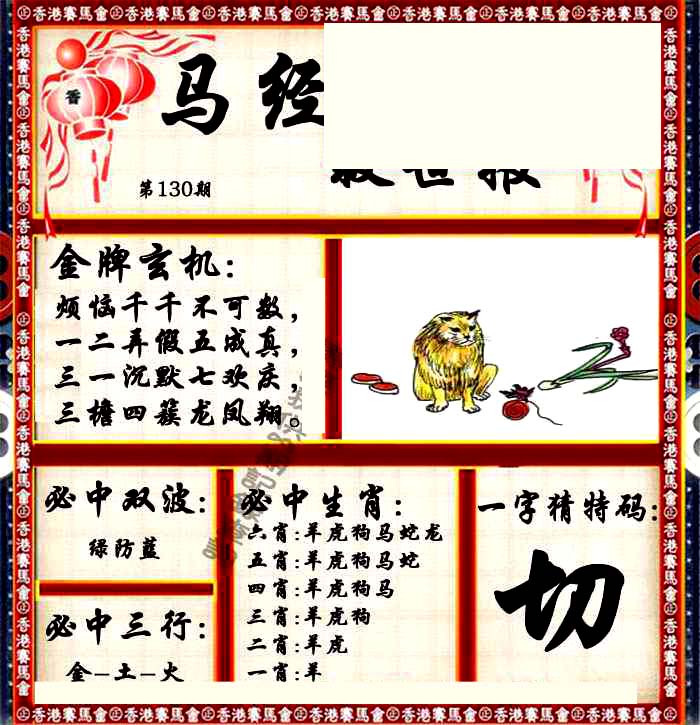 ㊣香港賽馬會㊣香港賽馬會㊣香港賽馬會㊣香港賽馬會㊣香港賽馬會㊣香港賽馬會㊣
香
马经
第130期
金牌玄机:
烦恼千千不可数,
一二弄假五成真,
三一沉默七欢庆,
三檐四簇龙凤翔。
必中双波:
绿防蓝
必中三行:
金-土-火
必中生肖:
六肖:羊虎狗马蛇龙
五肖:羊虎狗马蛇
四肖:羊虎狗马
三肖:羊虎狗
二肖:羊虎
一肖:羊
一字猜特码:
切
㊣香港賽馬會㊣香港賽馬會㊣香港賽馬會㊣香港賽馬會㊣香港賽馬會㊣香港賽馬會㊣